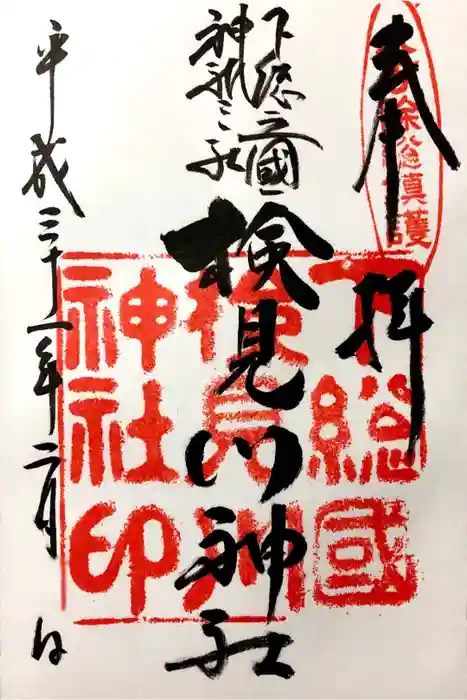 奉拝
八方除総鎮護
下総之國
神祇三社
検見川神社
下総國
検見川
神社印
平成三十一年二月 日